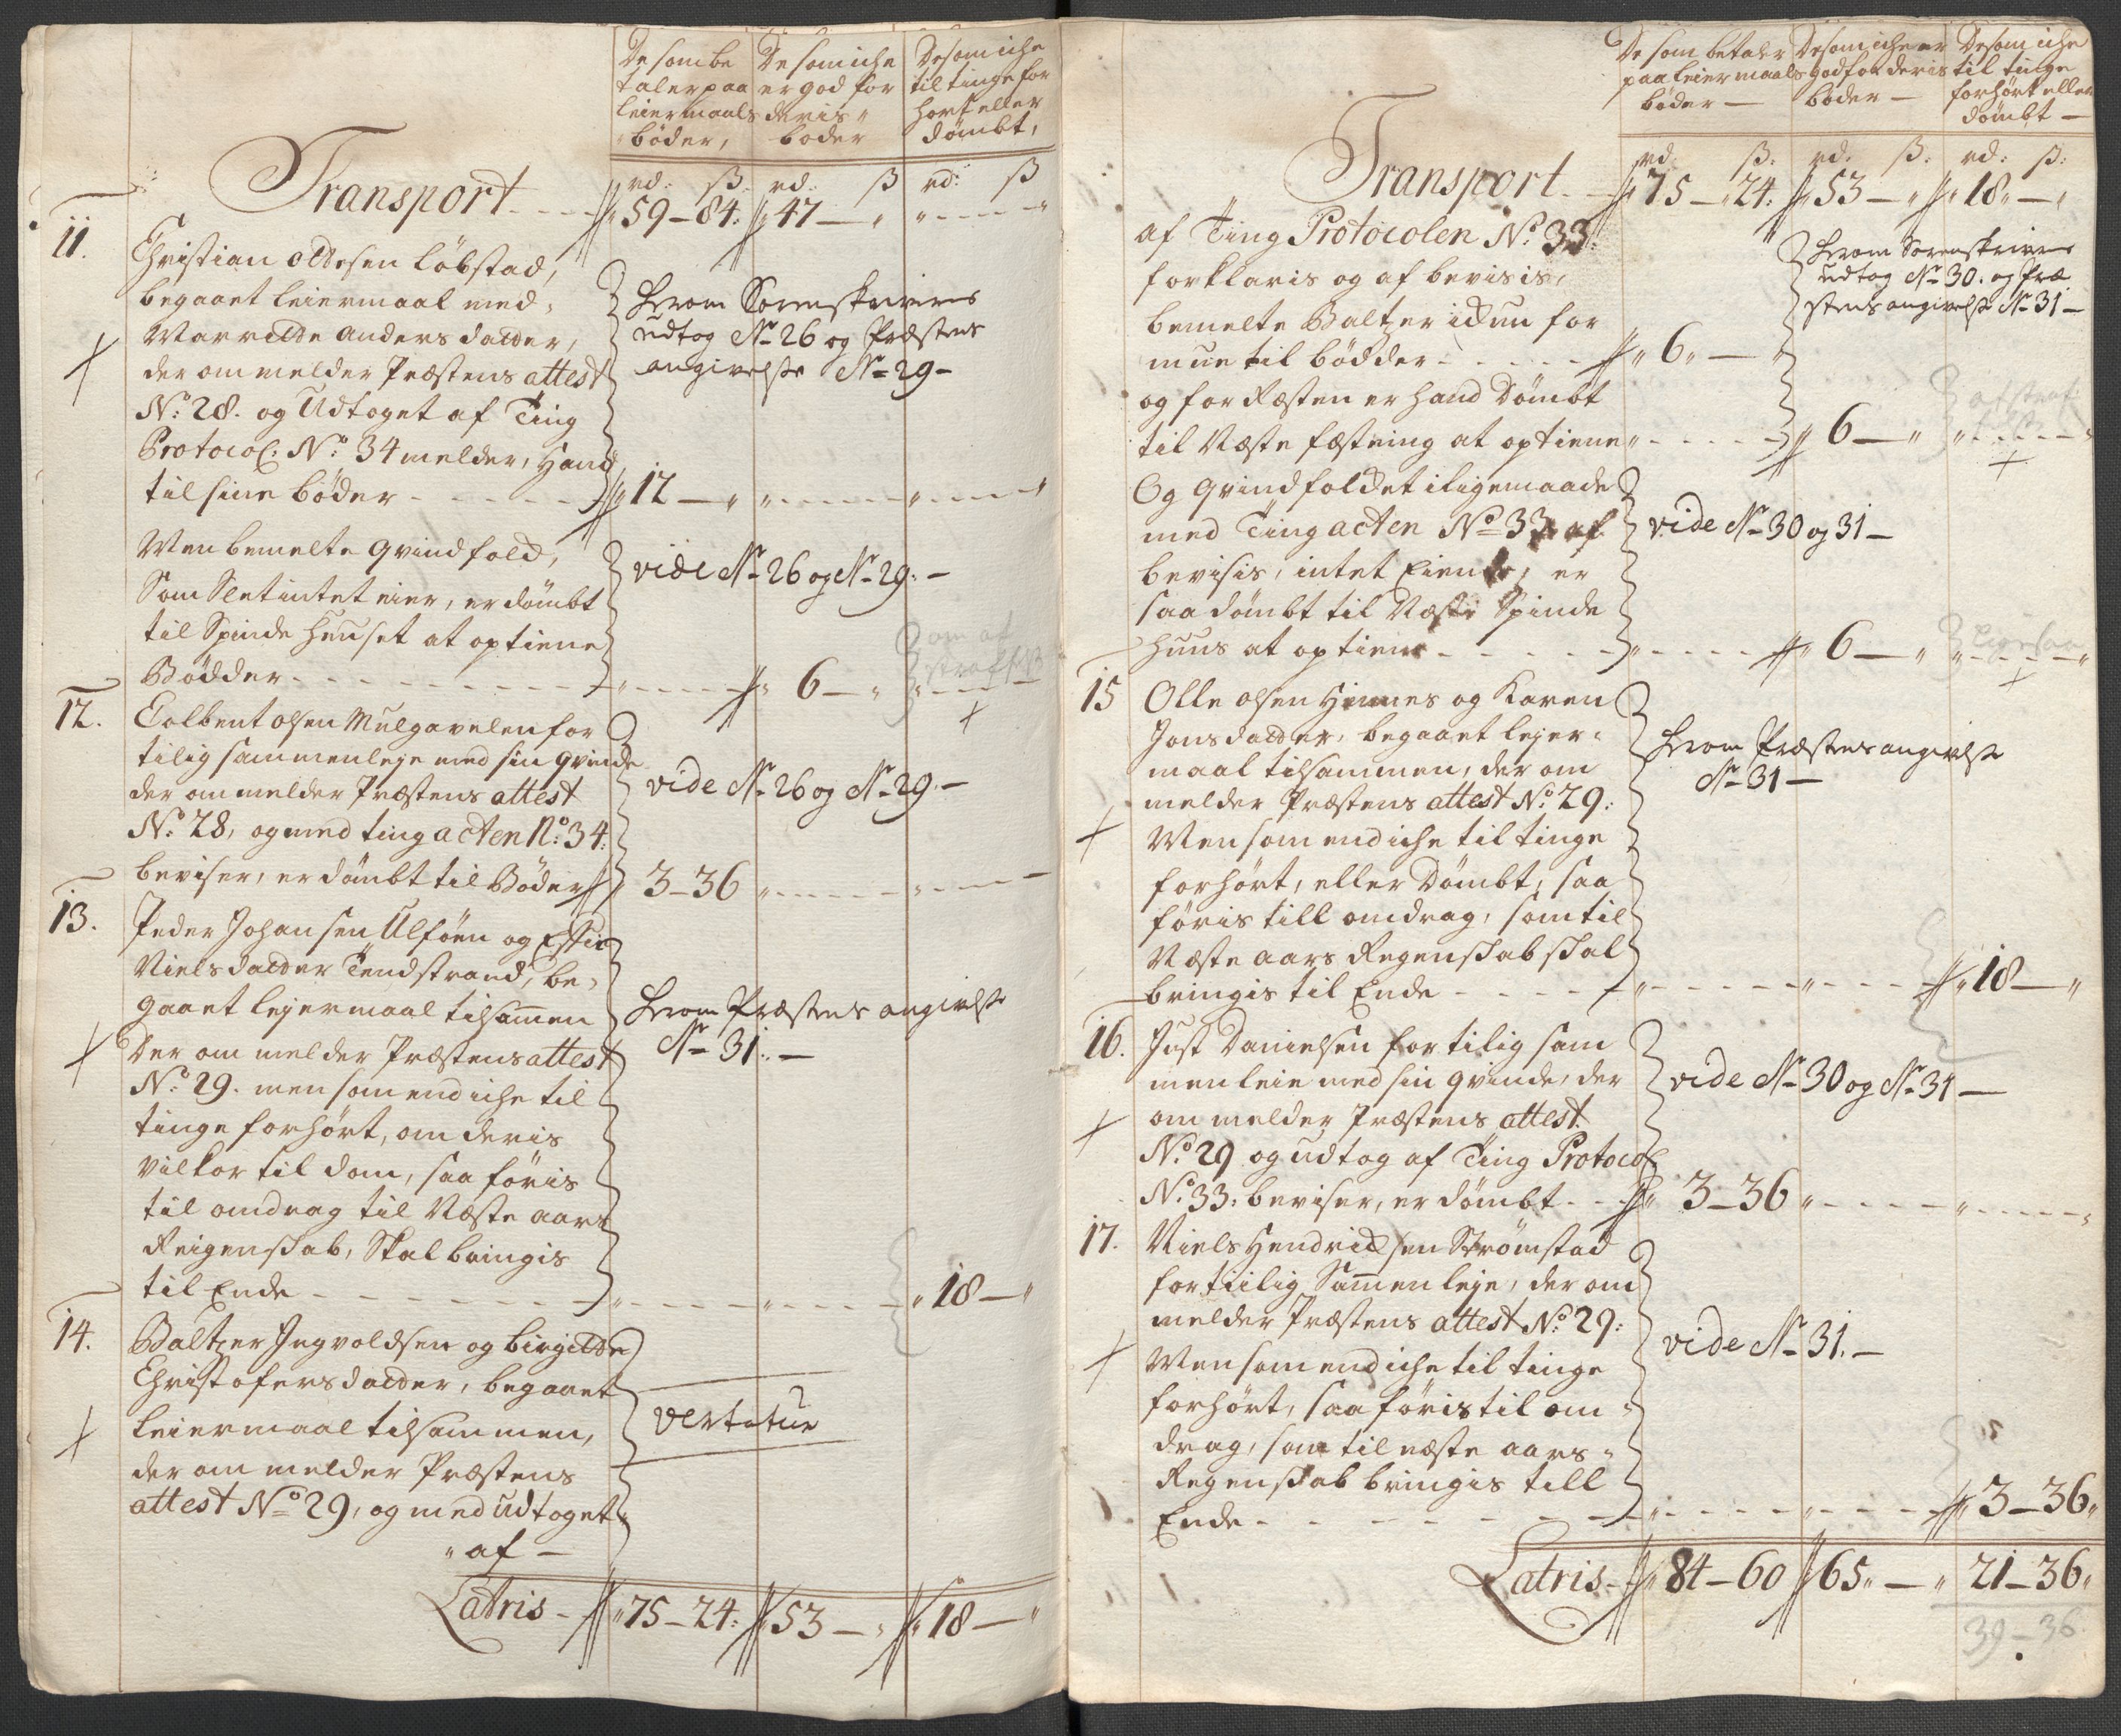 De som be
taler paa
leiermaals
bøder,
De som iche
er god for
deris
boder
De som iche
til tinge for
hort eller
dømbt,
rd: ß. rd: ß rd: ß
Transport 59–84: 47–
11.
Christian oldesen Løbstad,
begaaet leiermaal med
Marrilde Anders datter,
der om melder Præstens attest
No: 28. og Udtoget af Ting
Protocol: No: 34 melder, hand
til sine bøder 12–
herom Sorenskriverens
udtog No 26 og Præstens
angivelse No 29–
Men bemelte qvindfold,
Som Slet intet eier, er dømbt
til Spinde huuset at optiene
Bødder 6–
vide No 26 og No 29:–
om af
straff
12.
Tolbent olsen Mulgavelen for
tilig sammenleje med sin qvinde
der om melder Præstens attest
No: 28, og med ting acten No: 34:
beviser, er dømbt til Bøder 3–36
vide No 26 og No 29.–
13.
Peder Johansen Ulføen og
Niels datter Tendstrand, be
gaaet lejermaal tilsamen
Der om melder Præstens attest
No: 29. men som end iche til
tinge forhørt, om deris
vilkor til dom, saa føris
til omdrag til Næste aars
Reigenskab, Skal bringis
til Ende 18–
herom Præstens angivelse
No 31:–
14.
Baltzer Ingvoldsen og birgitte
Christofersdatter, begaaet
Leiermaal tilsammen,
der om melder Præstens
attest No 29, og med udtoget
af –
vertatur
Latris 75–24: 53– 18–
De som betaler
paa leiermaals
bøder –
De som iche er
god for deris
bøder –
De som iche
til tinge
forhørt eller
dømbt –
rd. ß: rd. ß. rd: ß:
Transport 75–24: 53– 18–
af Ting Protocolen No: 33:
forklaris og af bevisis,
bemelte Baltzer ickun for
mue til bødder 6–
herom Sorenskriverens
udtog No 30. og Præ
stens angivelse No 31–
og for Resten er hand Dømbt
til Næste fæstning at optiene 6–
afstraf:
Og qvindfoldet iligemaade
med Ting acten No 33 af
bevisis, intet Eiende, er
saa dømbt til Næste Spinde
huus at optiene 6–
vide No 30 og 31–
Ligesaa
15
Olle olsen Hinnes og Karen
Jonsdatter, begaaet lejer
maal tilsammen, der om
melder Præstens attest No: 29:
Men som end iche til tinge
forhørt, eller Dømbt, saa
føris till omdrag, som til
Næste aars Regenskab skal
bringis til Ende 18–
herom Præstens angivelse
No 31–
16.
Just Danielsen for tilig sam
men leie med sin qvinde, der
om melder Præstens attest
No: 29 og udtog af Ting Protocol
No: 33: beviser, er dømbt 3–36
vide No 30 og No 31–
17.
Niels Hendricksen Strømstad
for tiilig Samen leje, der om
melder Præstens attest No: 29:
Men som end iche til tinge
forhørt, saa føris til om
drag, som til næste aars
Regenskab bringis till
Ende 3–36
vide No 31.–
Latris 84–60 65– 21–36
39–36